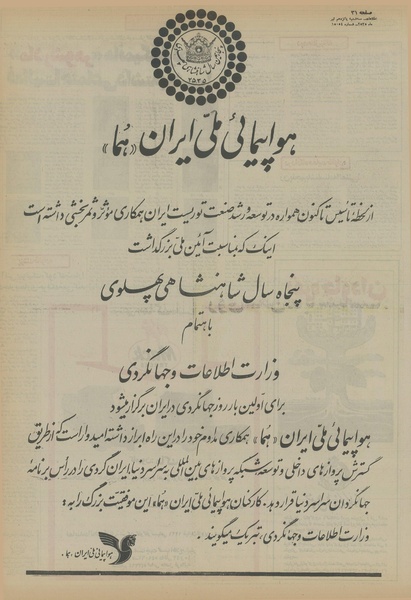 صفحه ۳۱
۲۵۳۵
هواپیمائی ملّی ایران «هُما»
از لحظهٔ تأسیس تاکنون همواره در توسعه و رشد صنعت توریست ایران همکاری مؤثر و ثمربخشی داشته است
اینک که بمناسبت آئین ملی بزرگداشت
پنجاه سال شاهنشاهی پهلوی
با اهتمام
وزارت اطلاعات و جهانگردی
برای اولین بار روز جهانگردی در ایران برگزار میشود
هواپیمائی ملی ایران «هُما» همکاری مداوم خود را در این راه ابراز داشته امیدوار است که از طریق
گسترش پروازهای داخلی و توسعه شبکه پروازهای بین‌المللی به سراسر دنیا ایران گردی را در رأس برنامهٔ
جهانگردان سراسر دنیا قرار دهد. کارکنان هواپیمائی ملی ایران «هما» این موفقیت بزرگ را به:
وزارت اطلاعات و جهانگردی، تبریک میگویند.
هواپیمائی ملی ایران. هما.